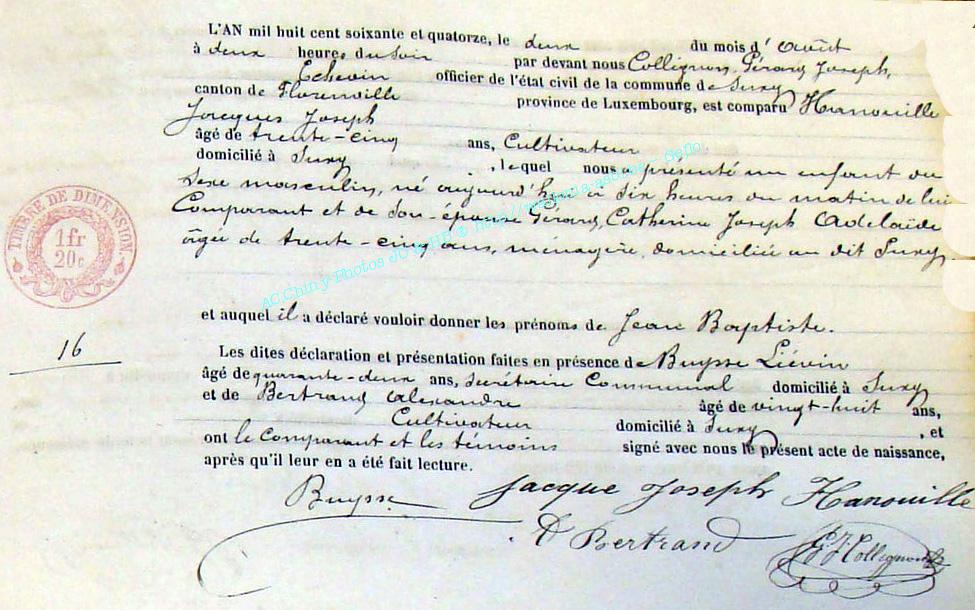 L'AN mil huit cent soixante et quatorze, le deux du mois d'août
à deux heures du soir par devant nous Collignon, Gérard Joseph,
Echevin officier de l'état civil de la commune de Suxy
canton de Florenville province de Luxembourg, est comparu Hanouille
Jacques Joseph
âgé de trente-cinq ans, Cultivateur
domicilié à Suxy, lequel nous a présenté un enfant du
sexe masculin, né aujourd'hui à six heures du matin de lui
Comparant et de son épouse Gérard, Catherine Joseph Adelaïde
âgée de trente-cinq ans, ménagère, domiciliée au dit Suxy,
TIMBRE DE DIMENSION.
1fr
20c
et auquel il a déclaré vouloir donner les prénoms de Jean Baptiste.
16
Les dites déclaration et présentation faites en présence de Buysse Liévin
âgé de quarante-deux ans, Secrétaire Communal domicilié à Suxy
et de Bertrand Alexandre âgé de vingt-huit ans,
Cultivateur domicilié à Suxy, et
ont le Comparant et les témoins signé avec nous le présent acte de naissance,
après qu'il leur en a été fait lecture.
Buysse Jacque Joseph Hanouille
A Bertrand GJ Collignon
AC Chiny Photos JO